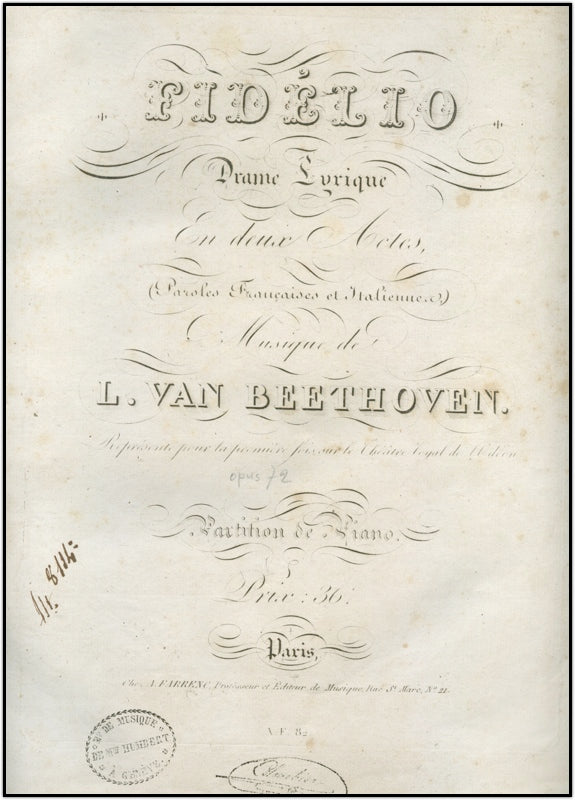 FIDÉLIO
Drame Lyrique
En deux Actes,
(Paroles Françaises et Italiennes)
Musique de
L. VAN BEETHOVEN.
Représenté pour la première fois sur le Théâtre Royal de l'Odéon
opus 72
Partition de Piano.
Prix: 36!
Paris,
Chez A. FARRENC, Professeur et Editeur de Musique, Rue St. Marc, No. 21.
A.F. 82
DE MUSIQUE
DE Mme HUMBERT
A GENÈVE